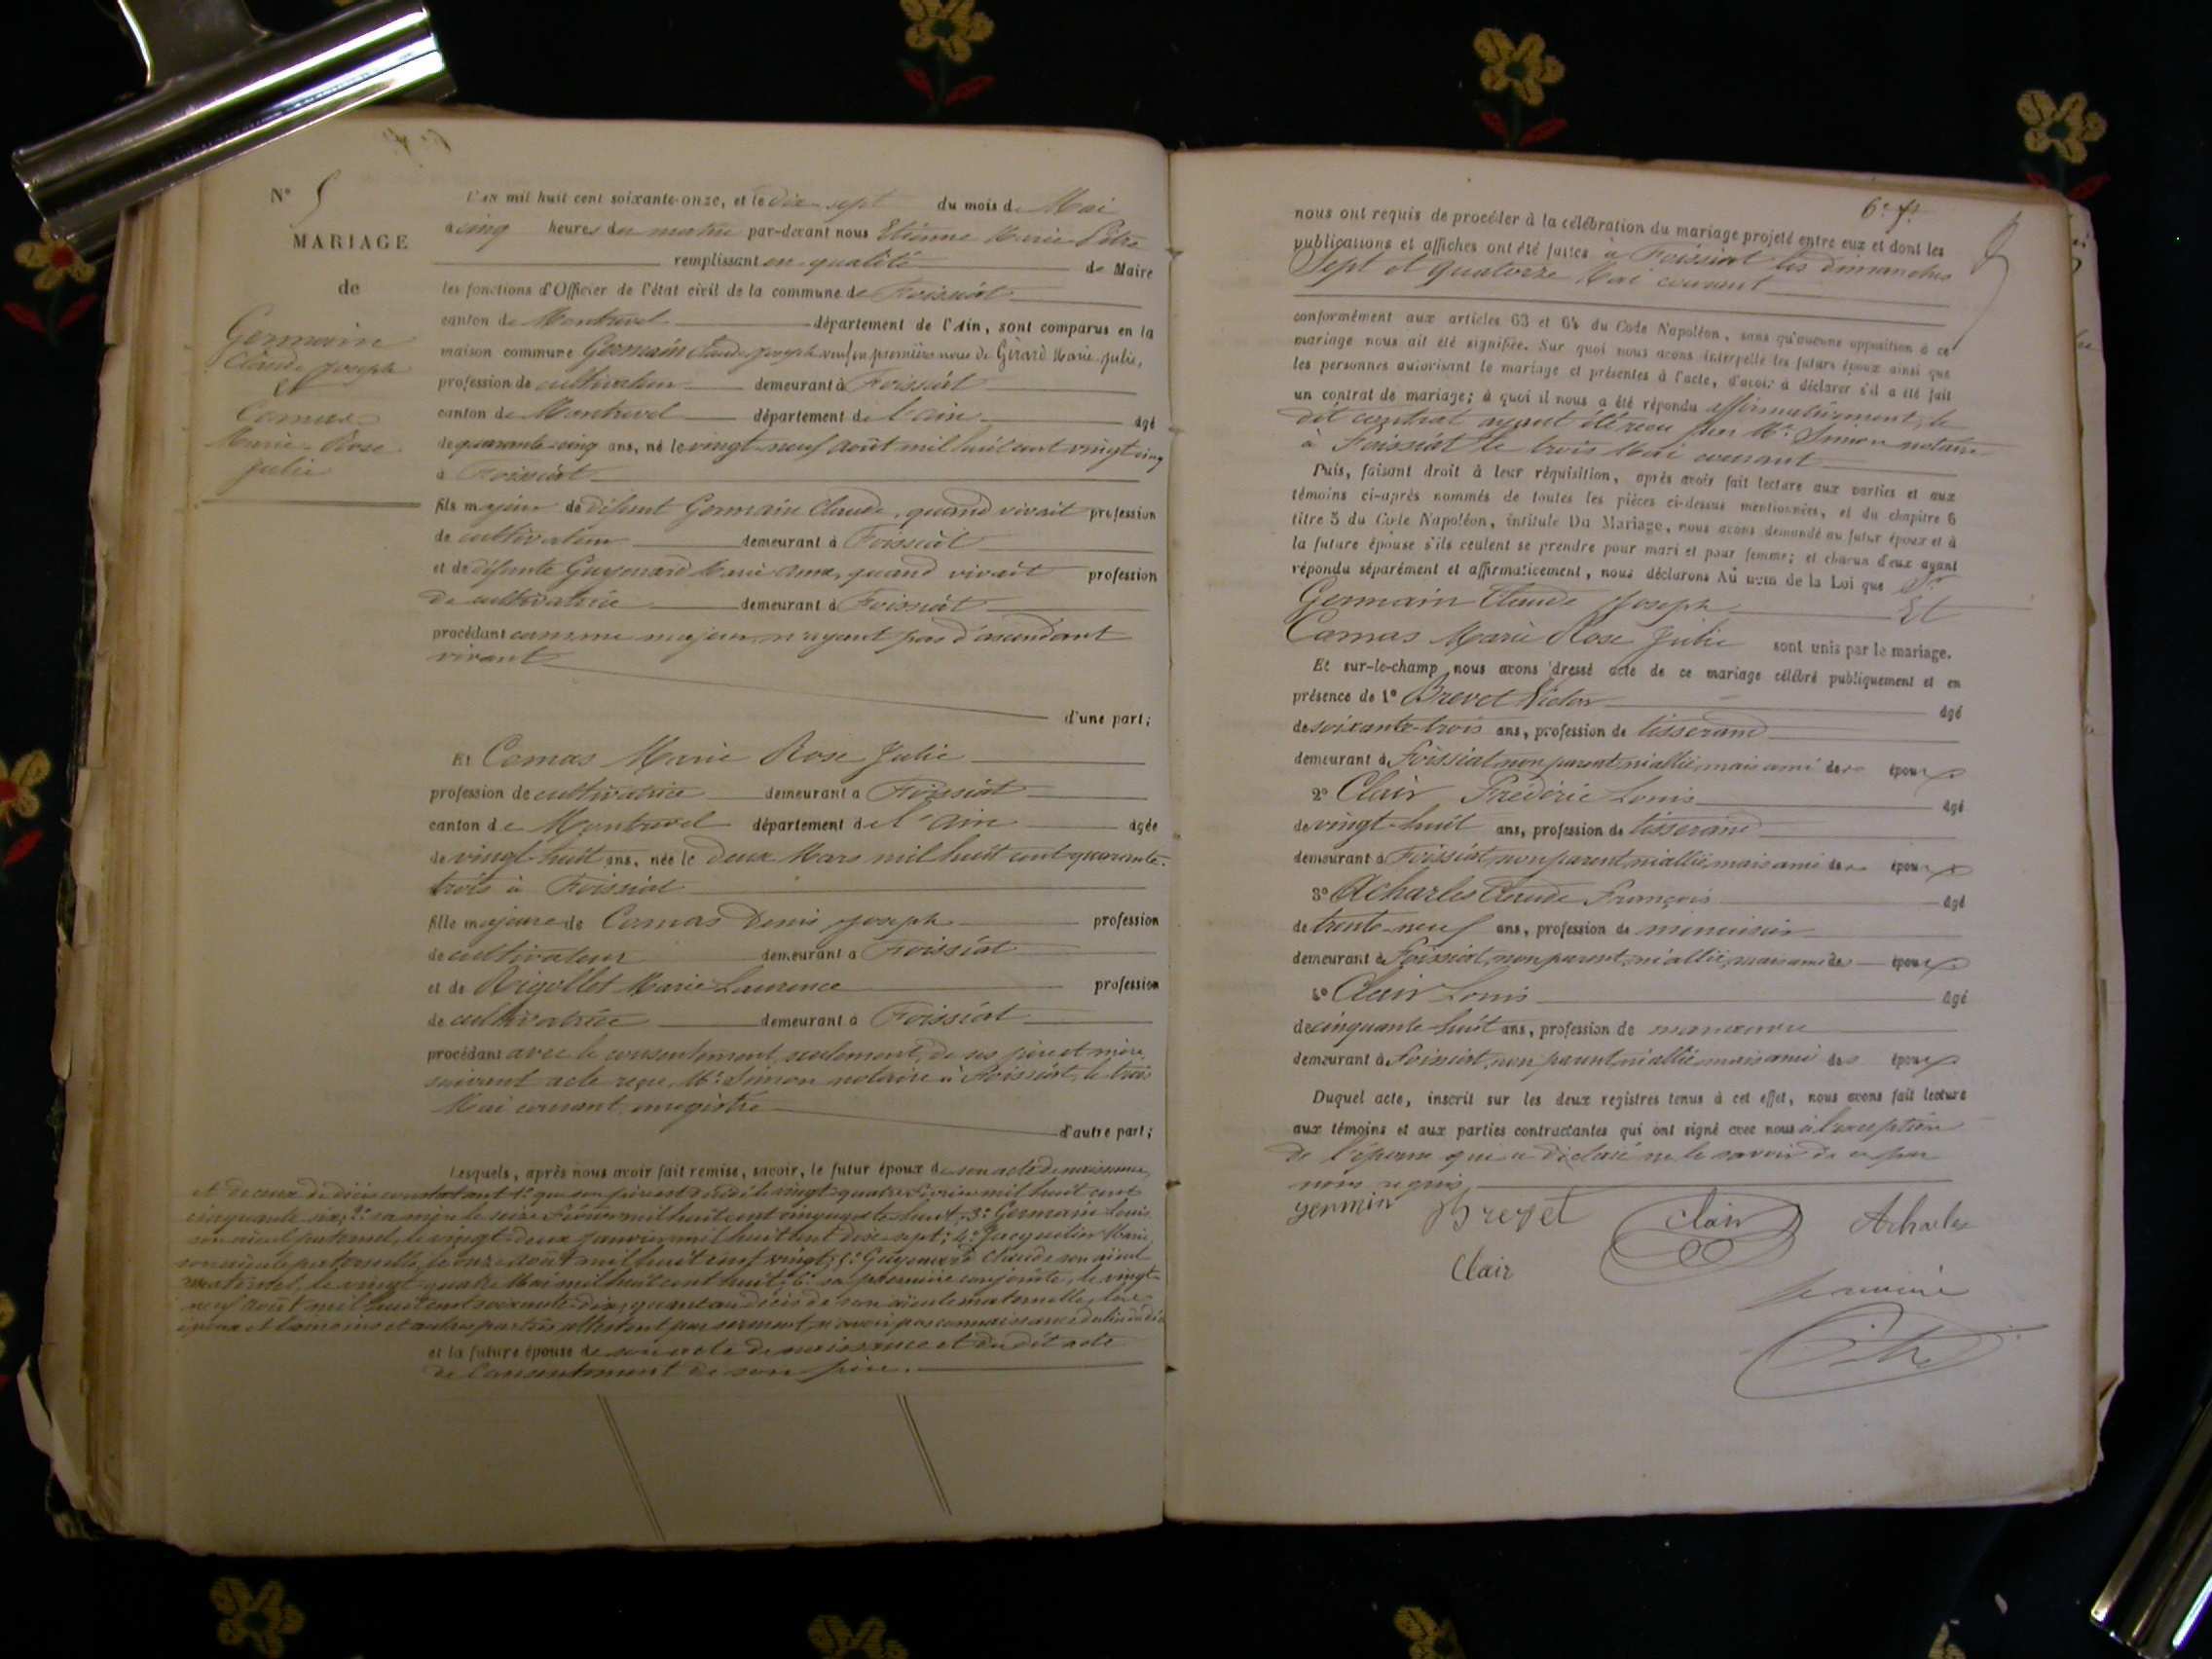 N° 5
MARIAGE
de
Germain
Claude Joseph
et
Camus
Marie Rose
Julie
L'an mil huit cent soixante-onze, et le dix-sept du mois de Mai
à cinq heures du matin par-devant nous Etienne Marie Pitre
remplissant en qualité de Maire
les fonctions d'Officier de l'état civil de la commune de Foissiat
canton de Montrevel département de l'Ain, sont comparus en la
maison commune Germain Claude Joseph veuf en premières noces de Girard Marie Julie,
profession de cultivateur demeurant à Foissiat
canton de Montrevel département de l'ain âgé
de quarante-cinq ans, né le vingt-neuf août mil huit cent vingt cinq
à Foissiat
fils majeur de défunt Germain Claude, quand vivait profession
de cultivateur demeurant à Foissiat
et de défunte Guyenard Marie Anne, quand vivait profession
de cultivatrice demeurant à Foissiat
procédant comme majeur n'ayant pas d'ascendant
vivant
d'une part;
Et Camas Marie Rose Julie
profession de cultivatrice demeurant à Foissiat
canton de Montrevel département de l'Ain âgée
de vingt-huit ans, née le deux Mars mil huit cent quarante-
trois à Foissiat
fille majeure de Camas Denis Joseph profession
de cultivateur demeurant à Foissiat
et de Rigollet Marie Laurence profession
de cultivatrice demeurant à Foissiat
procédant avec le consentement seulement de ses père et mère
suivant acte reçu Me Simon notaire à Foissiat, le trois
Mai courant enregistré
d'autre part;
Lesquels, après nous avoir fait remise, savoir, le futur époux de son acte de naissance,
et de ceux de décès constatant 1° que son père est décédé le vingt-quatre Février mil huit cent
cinquante six; 2° sa mère le seize Février mil huit cent cinquante huit; 3° Germain Louis
son aïeul paternel, le vingt-deux Janvier mil huit cent dix-sept; 4° Jacquelin Marie
son aïeule paternelle, le onze août mil huit cent vingt; 5° Guyenard Claude son aïeul
maternel, le vingt quatre Mai mil huit cent huit; 6° sa première conjointe, le vingt-
neuf août mil huit cent soixante-dix, quant au décès de son aïeule maternelle, les
époux et témoins et autres parties attestent par serment n'avoir pas connaissance du lieu du décès
et la future épouse de son acte de naissance et du dit acte
de consentement de son père.
6e ft
nous ont requis de procéder à la célébration du mariage projeté entre eux et dont les
publications et affiches ont été faites à Foissiat les dimanches
Sept et quatorze Mai courant
conformément aux articles 63 et 64 du Code Napoléon, sans qu'aucune opposition à ce
mariage nous ait été signifiée. Sur quoi nous avons interpellé les futurs époux ainsi que
les personnes autorisant le mariage et présentes à l'acte, d'avoir à déclarer s'il a été fait
un contrat de mariage; à quoi il nous a été répondu affirmativement, le
dit contrat ayant été reçu par Me Simon notaire
à Foissiat le trois Mai courant
Puis, faisant droit à leur réquisition, après avoir fait lecture aux parties et aux
témoins ci-après nommés de toutes les pièces ci-dessus mentionnées, et du chapitre 6
titre 5 du Code Napoléon, intitulé Du Mariage, nous avons demandé au futur époux et à
la future épouse s'ils veulent se prendre pour mari et pour femme; et chacun d'eux ayant
répondu séparément et affirmativement, nous déclarons Au nom de la Loi que Sr
Germain Claude Joseph Et
Camas Marie Rose Julie sont unis par le mariage.
Et sur-le-champ nous avons dressé acte de ce mariage célébré publiquement et en
présence de 1° Brevet Victor âgé
de soixante-trois ans, profession de tisserand
demeurant à Foissiat non parent, ni allié, mais ami des époux
2° Clair Frédéric Louis âgé
de vingt-huit ans, profession de tisserand
demeurant à Foissiat, non parent, ni allié, mais ami des époux
3° Acharles Claude François âgé
de trente-neuf ans, profession de menuisier
demeurant à Foissiat, non parent, ni allié, mais ami des époux
4° Clair Louis âgé
de cinquante huit ans, profession de manoeuvre
demeurant à Foissiat, non parent, ni allié mais ami des époux
Duquel acte, inscrit sur les deux registres tenus à cet effet, nous avons fait lecture
aux témoins et aux parties contractantes qui ont signé avec nous à l'exception
de l'épouse qui a déclaré ne le savoir de ce par
nous requis
germin Brevet Clair Acharles
Clair
Le maire
Pitre